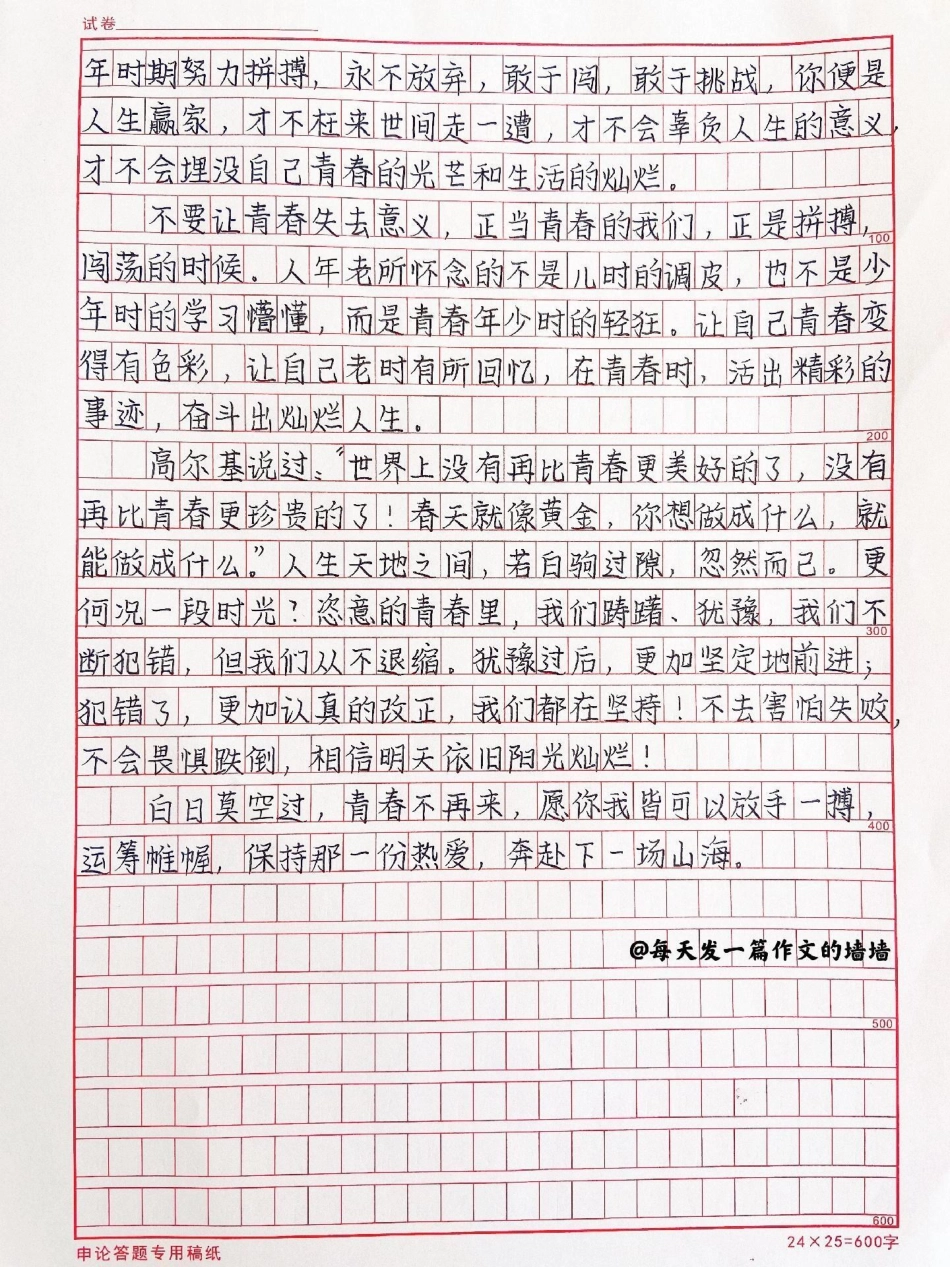 试卷
年时期努力拼搏，永不放弃，敢于闯，敢于挑战，你便是
人生赢家，才不枉来世间走一遭，才不会辜负人生的意义，
才不会埋没自己青春的光芒和生活的灿烂。
不要让青春失去意义，正当青春的我们，正是拼搏，
100
闯荡的时候。人年老所怀念的不是儿时的调皮，也不是少
年时的学习懵懂，而是青春年少时的轻狂。让自己青春变
得有色彩，让自己老时有所回忆，在青春时，活出精彩的
事迹，奋斗出灿烂人生。
200
高尔基说过：“世界上没有再比青春更美好的了，没有
再比青春更珍贵的了！春天就像黄金，你想做成什么，就
能做成什么。”人生天地之间，若白驹过隙，忽然而已。更
何况一段时光？恣意的青春里，我们踌躇、犹豫，我们不
300
断犯错，但我们从不退缩。犹豫过后，更加坚定地前进；
犯错了，更加认真的改正，我们都在坚持！不去害怕失败，
不会畏惧跌倒，相信明天依旧阳光灿烂！
白日莫空过，青春不再来，愿你我皆可以放手一搏，
400
运筹帷幄，保持那一份热爱，奔赴下一场山海。
@每天发一篇作文的墙墙
500
600
申论答题专用稿纸
24×25=600字